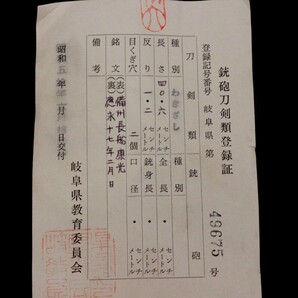 銃砲刀剣類登録証
登録記号番号 岐阜県 第 49675 号
刀剣類 銃砲
種別 わきざし 種別
長さ 四〇・六 センチメートル 全長 ・ センチメートル
反り 一・二 センチメートル 銃身長 ・ センチメートル
目くぎ穴 二個 口径 ・ センチメートル
銘文 (表) 備州長船康光
(裏) 應永十七年二月日
備考
昭和 年 月 日交付
岐阜県教育委員会